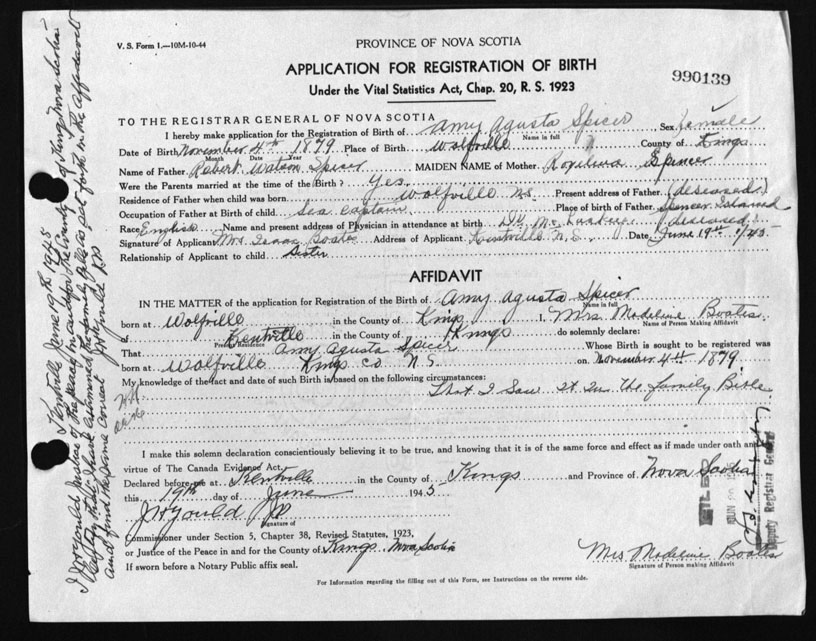 V. S. Form 1.—10M-10-44
PROVINCE OF NOVA SCOTIA
APPLICATION FOR REGISTRATION OF BIRTH
Under the Vital Statistics Act, Chap. 20, R. S. 1923
990139
TO THE REGISTRAR GENERAL OF NOVA SCOTIA
I hereby make application for the Registration of Birth of Amy Agusta Spicer Sex Female
Name in full
Date of Birth November 4th 1879 Place of Birth Wolfville County of Kings
Month Date Year
Name of Father Robert Watson Spicer MAIDEN NAME of Mother Spencer
Were the Parents married at the time of the Birth? Yes
Residence of Father when child was born Wolfville N.S. Present address of Father (deseased)
Occupation of Father at Birth of child Sea Captain Place of Birth of Father Spencer Island
Race English Name and present address of Physician in attendance at birth Dr. Mc deseased
Signature of Applicant Mrs Isaac Boates Address of Applicant Kentville N.S. Date June 19th 1945
Relationship of Applicant to child Sister
AFFIDAVIT
IN THE MATTER of the application for Registration of the Birth of Amy Agusta Spicer
Name in full
born at Wolfville in the County of Kings I, Mrs Madeline Boates
Name of Person Making Affidavit
of Kentville in the County of Kings do solemnly declare:
Present Residence
That Amy Agusta Spicer Whose Birth is sought to be registered was
born at Wolfville Kings Co N.S. on November 4th 1879
My knowledge of the fact and date of such Birth is based on the following circumstances:
That I Saw it In The Family Bible
I make this solemn declaration conscientiously believing it to be true, and knowing that it is of the same force and effect as if made under oath and
virtue of The Canada Evidence Act.
Declared before me at Kentville in the County of Kings and Province of Nova Scotia
this 19th day of June 1945
J W Gould JP
Signature of
Commissioner under Section 5, Chapter 38, Revised Statutes, 1923,
or Justice of the Peace in and for the County of Kings Nova Scotia
If sworn before a Notary Public affix seal.
Mrs Madeline Boates
Signature of Person making Affidavit
For Information regarding the filling out of this Form, see Instructions on the reverse side.
Kentville June 19th 1945
I J W Gould Justice of the peace in and for the County of Kings Nova Scotia
Certify that I have examined the Bible as set forth in the Affidavit
and find the same correct J W Gould JP
FILED
JUN
Deputy Registrar General